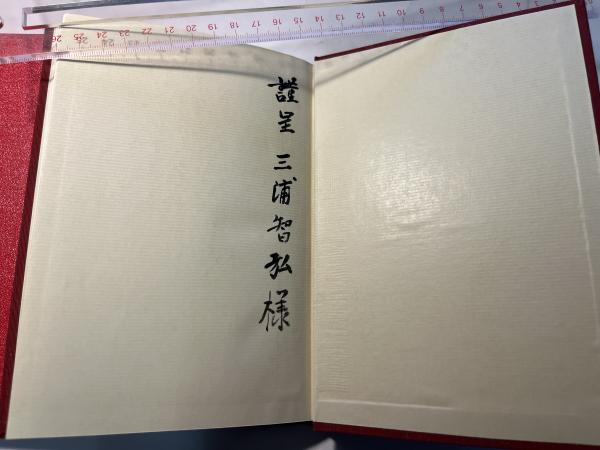 謹呈 三浦智弘様
26 25 24 23 22 21 20 19 18 17 16 15 14 13 12 11 10 9 8 7 6 5 4 3 2